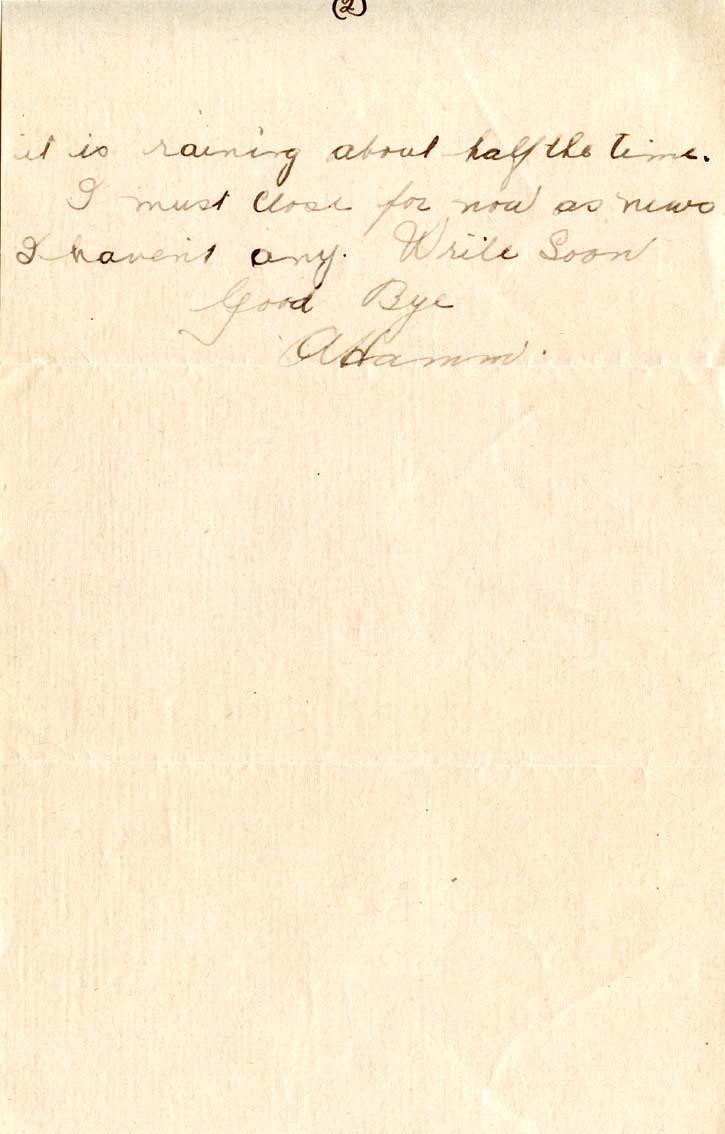 (2)
it is raining about half the time.
I must close for now as news
I haven't any. Write Soon
Good Bye
AHamm.